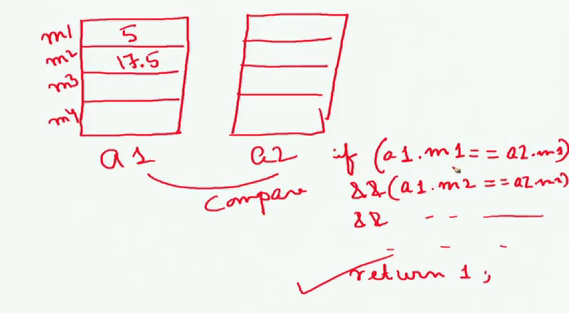 m1 5
m2 17.5
m3
m4
a1 a2
Compare
if (a1.m1==a2.m1)
&&(a1.m2==a2.m2)
&& -- —
- - -
return 1;